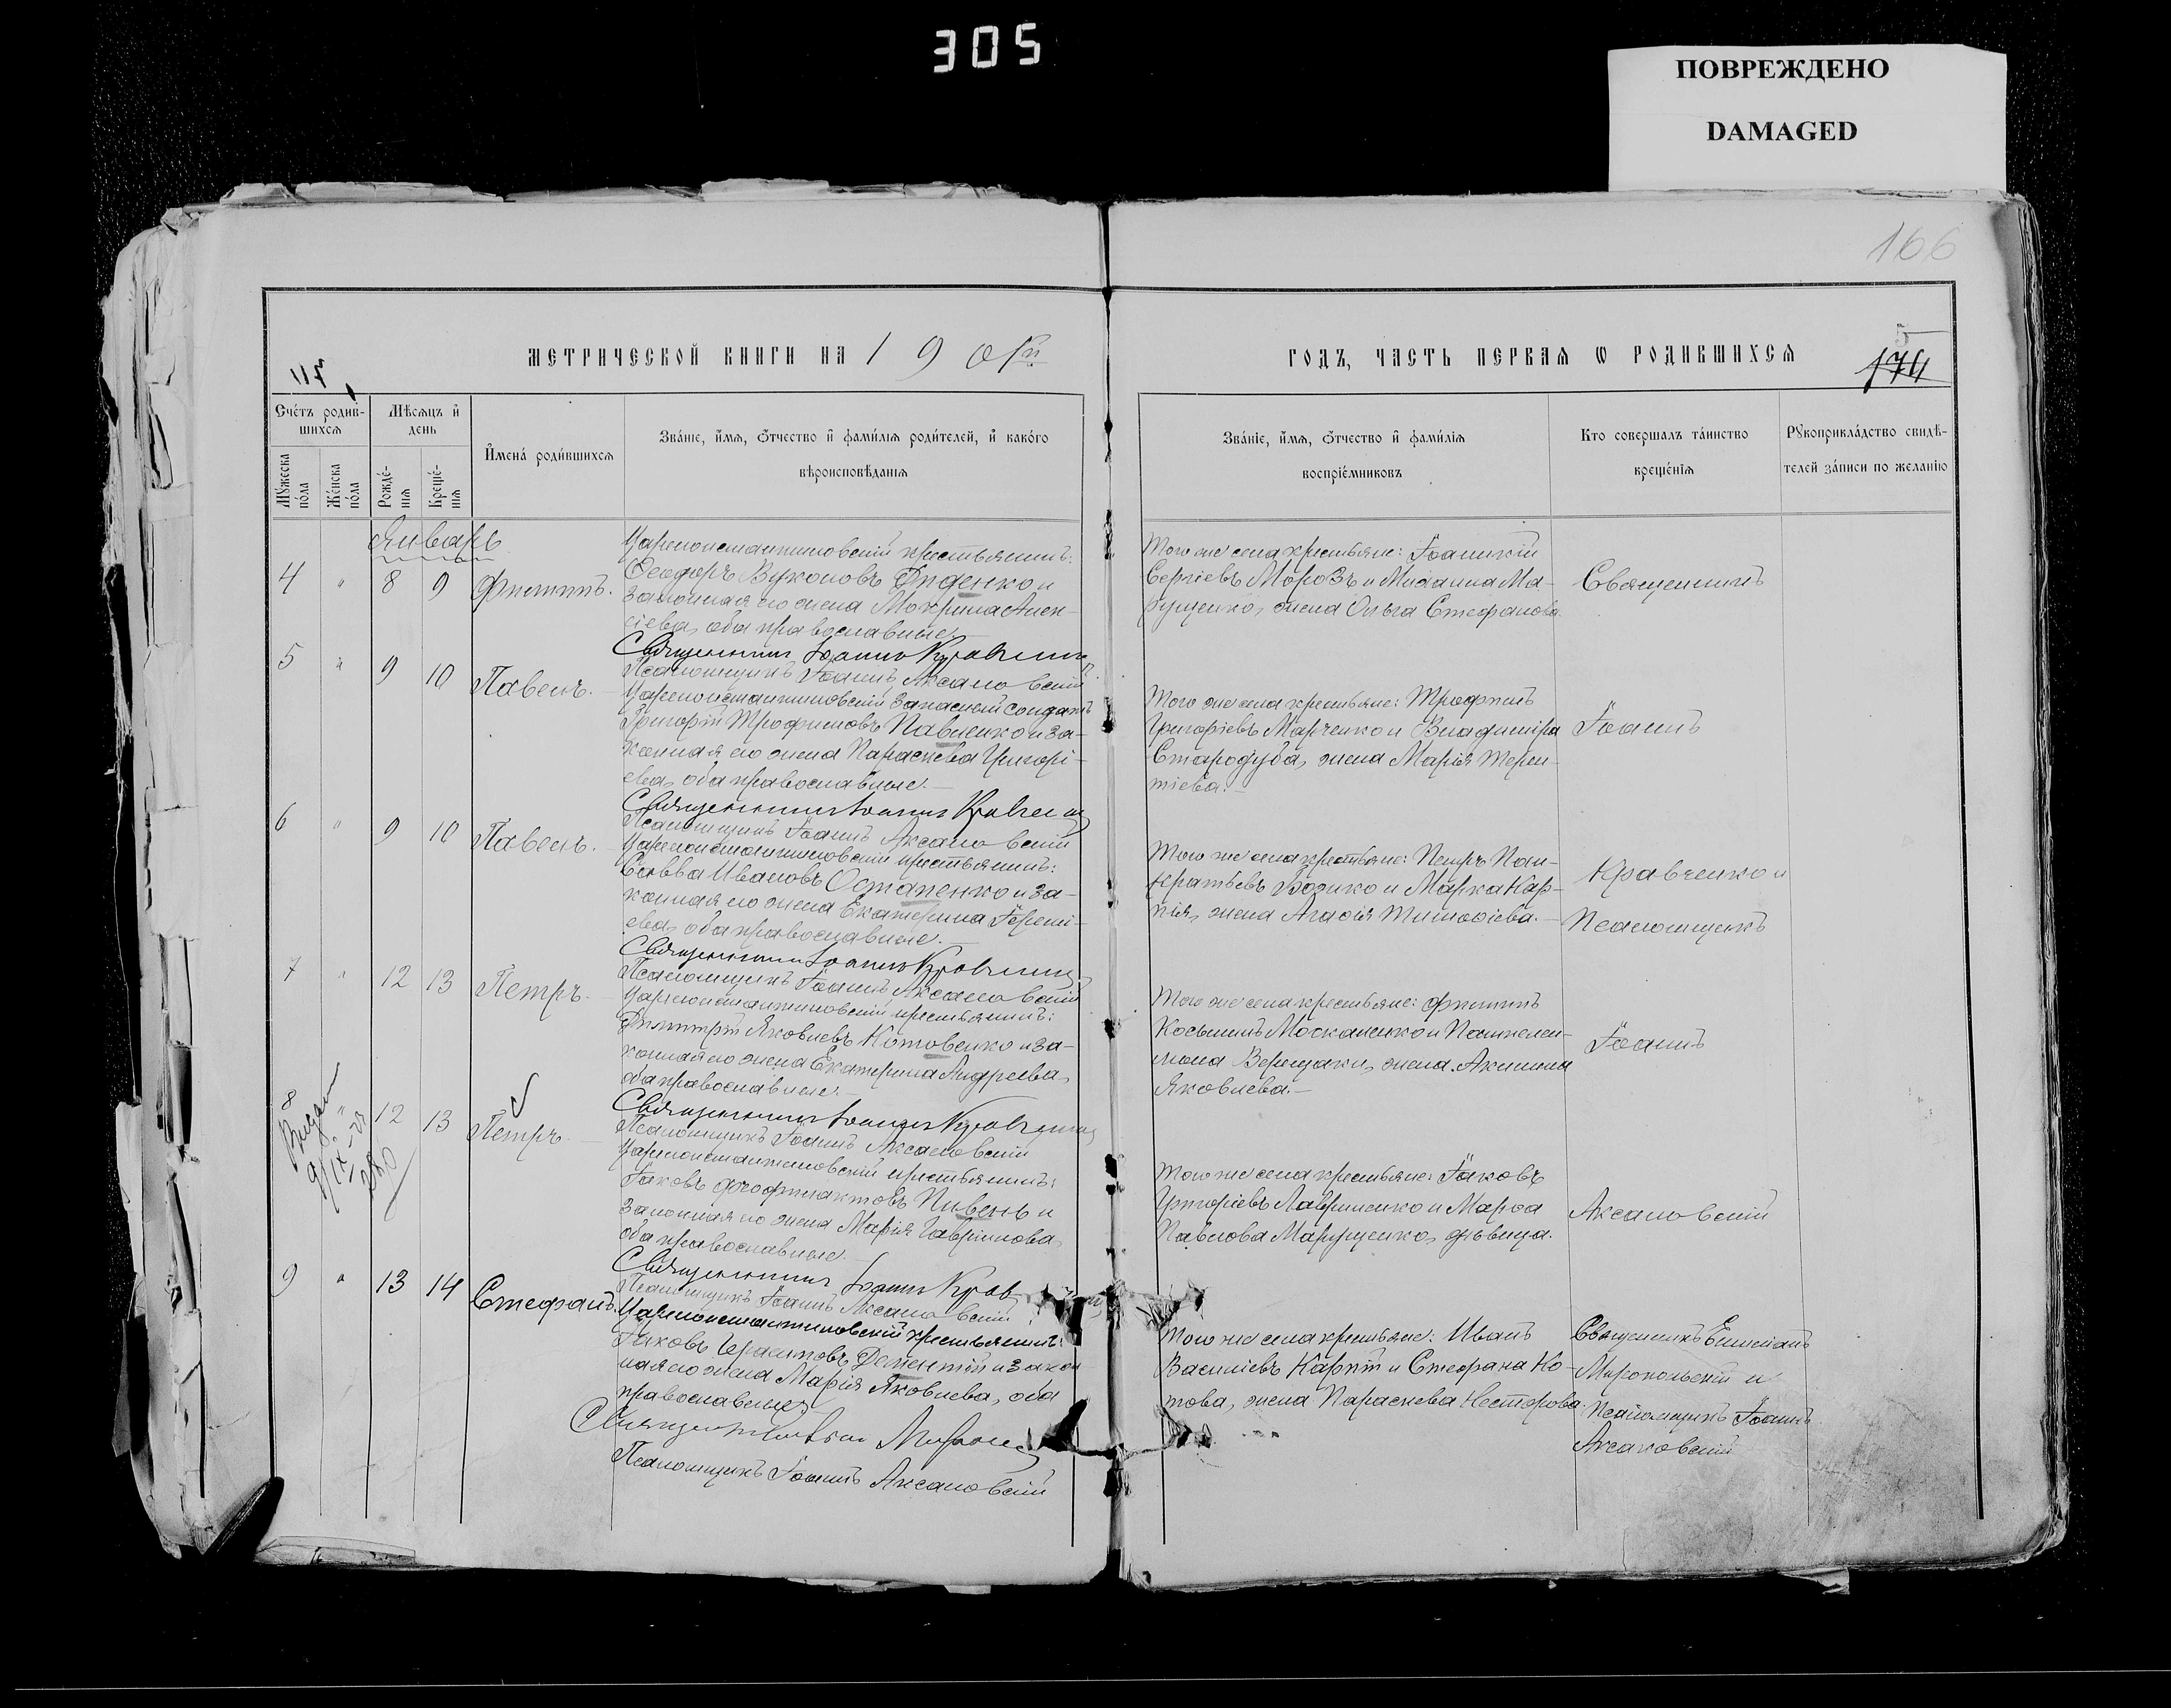 305
ПОВРЕЖДЕНО
DAMAGED
166
МЕТРИЧЕСКОЙ КНИГИ НА 190
ГОДЪ, ЧАСТЬ ПЕРВАЯ Ѡ РОДИВШИХСЯ
5
174
Счётъ родив-
шихся
Мѣсяцъ и
день
Имена родившихся
Званіе, имя, отчество и фамилія родителей, и какого
вѣроисповѣданія
Мужеска пола
Женска пола
Рожде-
нія
Креще-
нія
Званіе, имя, отчество и фамилія
воспріемниковъ
Кто совершалъ таинство
крещенія
Рукоприкладство свидѣ-
телей записи по желанію
Январь
4 " 8 9 Филиппъ.
Цареконстантиновскій крестьянинъ:
Ѳеодоръ Вуколовъ Диденко и
законная его жена Мокрина Алек-
сіева, оба православные.
Священникъ Іоаннъ Кравченко
Псаломщикъ Іоаннъ Аксаковскій
Того же села крестьяне: Іоаникій
Сергіевъ Морозъ и Михаила Ма-
рущенко, жена Ольга Стефанова.
Священникъ
5 " 9 10 Павелъ.
Цареконстантиновскій запасный солдатъ
Григорій Трофимовъ Павленко и за-
конная его жена Параскева Григорі-
ева, оба православные.
Священникъ Іоаннъ Кравченко
Псаломщикъ Іоаннъ Аксаковскій
Того же села крестьяне: Трофимъ
Григоріевъ Марченко и Владиміра
Стародуба, жена Марія Терен-
тіева.
Іоаннъ
6 " 9 10 Павелъ.
Цареконстантиновскій крестьянинъ:
Савва Ивановъ Остапенко и за-
конная его жена Екатерина Іеремі-
ева, оба православные.
Священникъ Іоаннъ Кравченко
Псаломщикъ Іоаннъ Аксаковскій
Того же села крестьяне: Петръ Пан-
кратьевъ Бозико и Марка Кар-
пія, жена Агафія Тимофіева.
Кравченко и
Псаломщикъ
7 " 12 13 Петръ.
Цареконстантиновскій крестьянинъ:
Димитрій Яковлевъ Котовенко и за-
конная его жена Екатерина Андреева,
оба православные.
Священникъ Іоаннъ Кравченко
Псаломщикъ Іоаннъ Аксаковскій
Того же села крестьяне: Филиппъ
Косьминъ Москаленко и Пантелеи-
мона Верещаки, жена Акилина
Яковлева.
Іоаннъ
8 " 12 13 Петръ.
Цареконстантиновскій крестьянинъ:
Іаковъ Феофилактовъ Пивень и
законная его жена Марія Гавриилова,
оба православные.
Священникъ Іоаннъ Крав
Псаломщикъ Іоаннъ Аксаковскій
Того же села крестьяне: Іаковъ
Григоріевъ Лавриненко и Марѳа
Павлова Марущенко, дѣвица.
Аксаковскій
9 " 13 14 Стефанъ.
Цареконстантиновскій крестьянинъ:
Іаковъ Герасимовъ Дементій и закон
ная его жена Марія Яковлева, оба
православные
Псаломщикъ Іоаннъ Аксаковскій
Того же села крестьяне: Иванъ
Василіевъ Карпій и Стефана Ко-
това, жена Параскева Несторова.
Священникъ
Миропольскій и
Псаломщикъ Іоаннъ
Аксаковскій